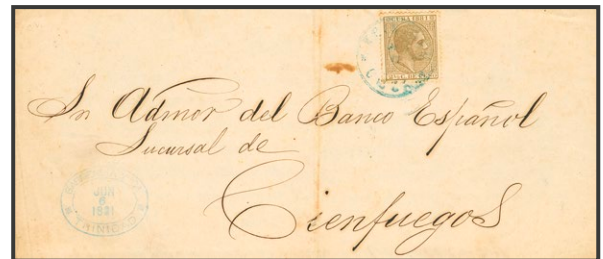 Sr Admor del Banco Español
Sucursal de
Cienfuegos
JUN
6
TRINIDAD